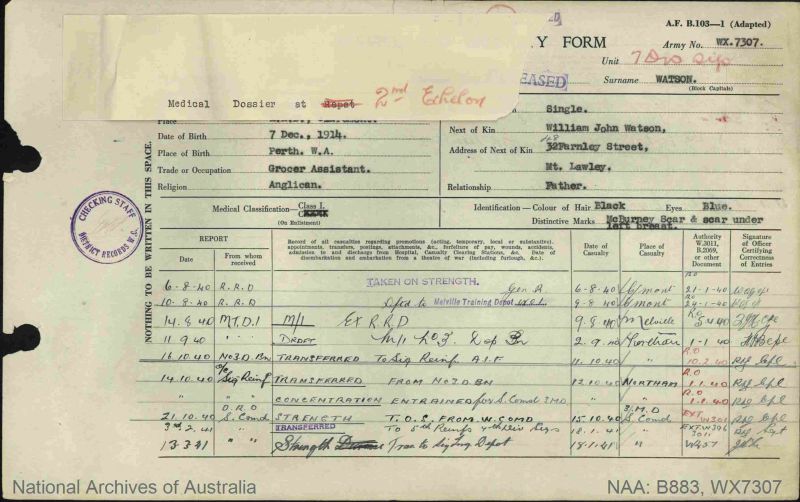 A.F. B.103—1 (Adapted)
Y FORM
Army No. WX.7307.
Unit 7 Div Sigs
EASED
Surname WATSON.
(Block Capitals)
Medical Dossier at Repat 2nd Echelon
Place
Single.
Date of Birth 7 Dec., 1914.
Next of Kin William John Watson,
Place of Birth Perth. W.A.
Address of Next of Kin 32 Farnley Street,
48
Trade or Occupation Grocer Assistant.
Mt. Lawley.
Religion Anglican.
Relationship Father.
NOTHING TO BE WRITTEN IN THIS SPACE.
CHECKING STAFF
DISTRICT RECORDS W.C.
Medical Classification— Class I.
(On Enlistment)
Identification—Colour of Hair Black Eyes Blue.
Distinctive Marks McBurney Scar & scar under
left breast.
REPORT
Date
From whom received
Record of all casualties regarding promotions (acting, temporary, local or substantive), appointments, transfers, postings, attachments, &c., forfeiture of pay, wounds, accidents, admission to and discharge from Hospital, Casualty Clearing Stations, &c. Date of disembarkation and embarkation from a theatre of war (including furlough, &c.).
Date of Casualty
Place of Casualty
Authority W.3011, B.2069, or other Document
Signature of Officer Certifying Correctness of Entries
6-8-40 R.R.D TAKEN ON STRENGTH. Gen. A 6-8-40 C/mont RO 21-1-40
10-8-40 R.R.D to Melville Training Depot 9-8-40 C/mont 24-1-40
14.8.40 M.T.D.1 M/I Ex R.R.D 9.8.40 Melville RO
11 9.40 DRAFT No 3. Dep Bn 2.9.40 Northam 1-1-40
16.10.40 No 3 D. Bn TRANSFERRED To Sig Reinf A.I.F 11.10.40 R.O 10.2.40
14.10.40 O/C Sig Reinf TRANSFERRED FROM No 3 D. BN 12.10.40 NORTHAM R.O 1.1.40
CONCENTRATION ENTRAINED for S. Comd 3 M.D R.O 1.1.40
21.10.40 D.R.O S. Comd STRENGTH T.O.S. FROM W. COMD 15.10.40 3 M.D S. Comd EXT W3011
3rd 2. 41 " " TRANSFERRED TO 5th Reinfs 7th Div Sigs 18.1.41 " EXT W306 3011
13.3.41 " " Strength Trans to Sig Trg Depot 18.1.41 " W457
National Archives of Australia
NAA: B883, WX7307